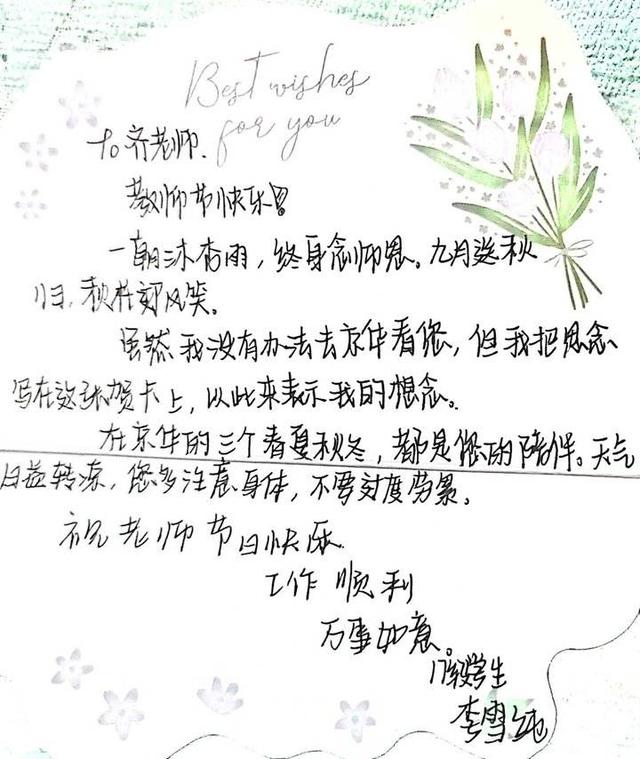 Best wishes
for you
to齐老师.
教师节快乐!
一朝沐杏雨,终身念师恩。九月秋
归,秋在风笑。
虽然我没有办法去京华看您,但我把思念
写在这张贺卡上,以此来表示我的想念。
在京华的三个春夏秋冬,都是您的陪伴。天气
日益转凉,您多注意身体,不要过度劳累。
祝老师节日快乐
工作顺利
万事如意。
17级学生
李雪纯